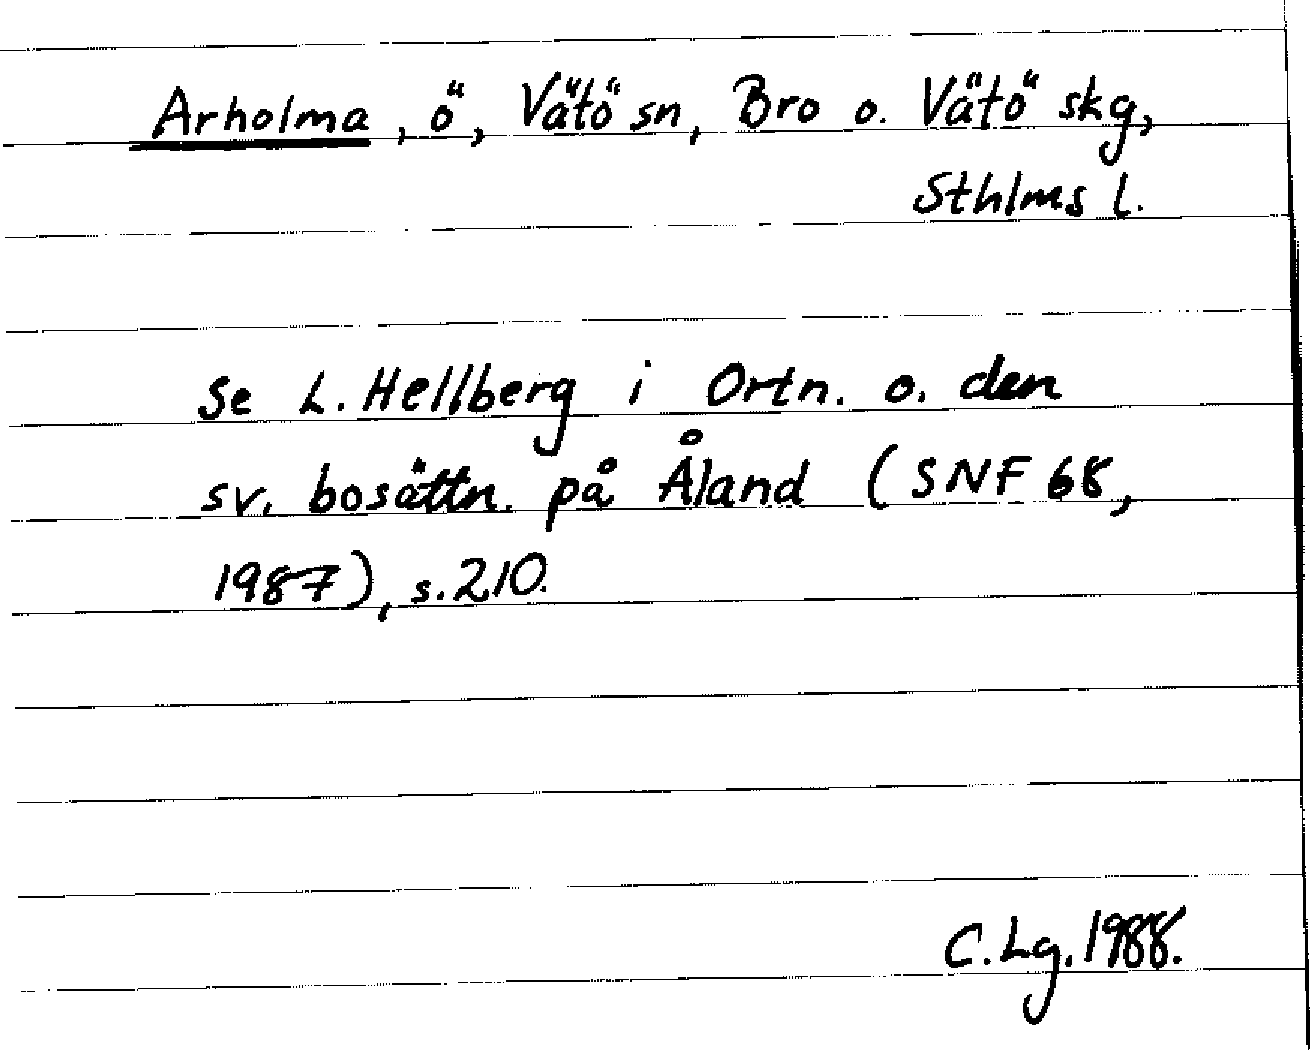 Arholma, ö, Vätö sn, Bro o. Vätö skg,
Sthlms l.
Se L. Hellberg i Ortn. o. den
sv. bosättn. på Åland (SNF 68,
1987), s. 210.
C. Lg. 1988.